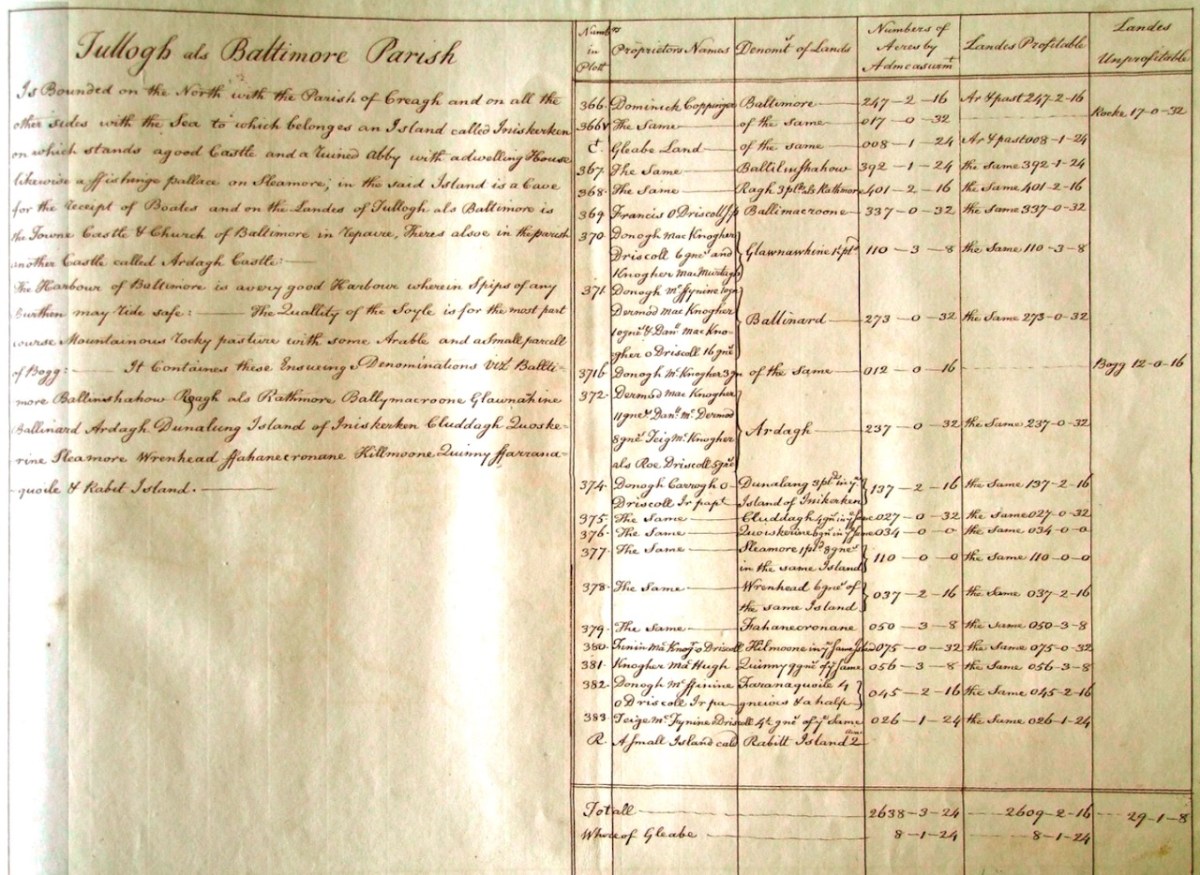 Tullogh als Baltimore Parish
Is Bounded on the North with the Parish of Creagh and on all the
other sides with the Sea to which belongs an Island called Iniskerken
on which stands a good Castle and a ruined Abby with a dwelling House
likewise a fishinge pallace on Sleamore; in the said Island is a Cave
for the receipt of Boates and on the Landes of Tullogh als Baltimore is
the Towne Castle & Church of Baltimore in repaire, Theres alsoe in the parish
another Castle called Ardagh Castle:
The Harbour of Baltimore is a very good Harbour wherein Spips of any
burthen may ride safe: The Quallity of the Soyle is for the most part
course Mountainous rocky pasture with some Arable and a small parcell
of Bogg: It Containes these Ensueing Denominations vizt Ballti-
more Ballinshahow Rogh als Rathmore Ballymacroone Glawnahine
Ballinard Ardagh Dunalung Island of Iniskerken Cluddagh Quoske-
rine Sleamore Wrenhead ffahanecronane Killmoone Quinny ffarrana-
-quoile & Rabit Island.
Numbrs in Plott
Proprietors Names
Denomt of Lands
Numbers of Acres by Admeasurmt
Landes Profitable
Landes Unprofitable
366 Dominick Coppinger Baltimore 247-2-16 Ar & past 247-2-16
366 The Same of the same 017-0-32 Rocke 17-0-32
Gleabe Land of the same 008-1-24 Ar & past 008-1-24
367 The Same Baltilinshahow 392-1-24 the same 392-1-24
368 The Same Ragh 3 plds als Rathmore 401-2-16 the same 401-2-16
369 Francis O Driscoll Ballimacroone 337-0-32 the same 337-0-32
370 Donogh Mac Knogher
Driscoll 6 gnes and Glawnawhine 110-3-8 the same 110-3-8
Knogher Mac Murtagh
371 Donogh Mc ffynine
Dermod Mac Knogher
10 gnes & Danl Mac Kno- Ballinard 273-0-32 the same 273-0-32
gher o Driscoll 16 gnes
371b Donogh Mc Knogher 3 gn of the same 012-0-16 Bogg 12-0-16
372 Dermod Mac Knogher
11 gnes Danl Mc Dermod
8 gnes Teig Mc Knogher Ardagh 237-0-32 the same 237-0-32
als Roe Driscoll 5 gnes
374 Donogh Carrogh o Dunalang 3 plds in ye 137-2-16 the same 137-2-16
Driscoll Ir papt Island of Inikerken
375 The Same Cluddagh 4 gn in ye same 027-0-32 the same 027-0-32
376 The Same Quoiskerine 6 gn in ye same 034-0-0 the same 034-0-0
377 The Same Sleamore 1 pld 8 gnes 110-0-0 the same 110-0-0
in the same Island
378 The Same Wrenhead 6 gnes of 037-2-16 the same 037-2-16
the same Island
379 The Same Fahanecronane 050-3-8 the same 050-3-8
380 Finin Mac Knogr o Driscoll Kilmoone in ye same Island 075-0-32 the same 075-0-32
381 Knogher Mac Hugh Quinny 9 gns of ye same 056-3-8 the same 056-3-8
382 Donogh Mc ffinine Faranaquoile 4 045-2-16 the same 045-2-16
o Driscoll Ir pa gneives & a halfe
383 Teige Mc Fynine Driscoll 4½ gnes of ye same 026-1-24 the same 026-1-24
R A small Island cald Rabitt Island 2
Totall 2638-3-24 2609-2-16 29-1-8
Whereof Gleabe 8-1-24 8-1-24